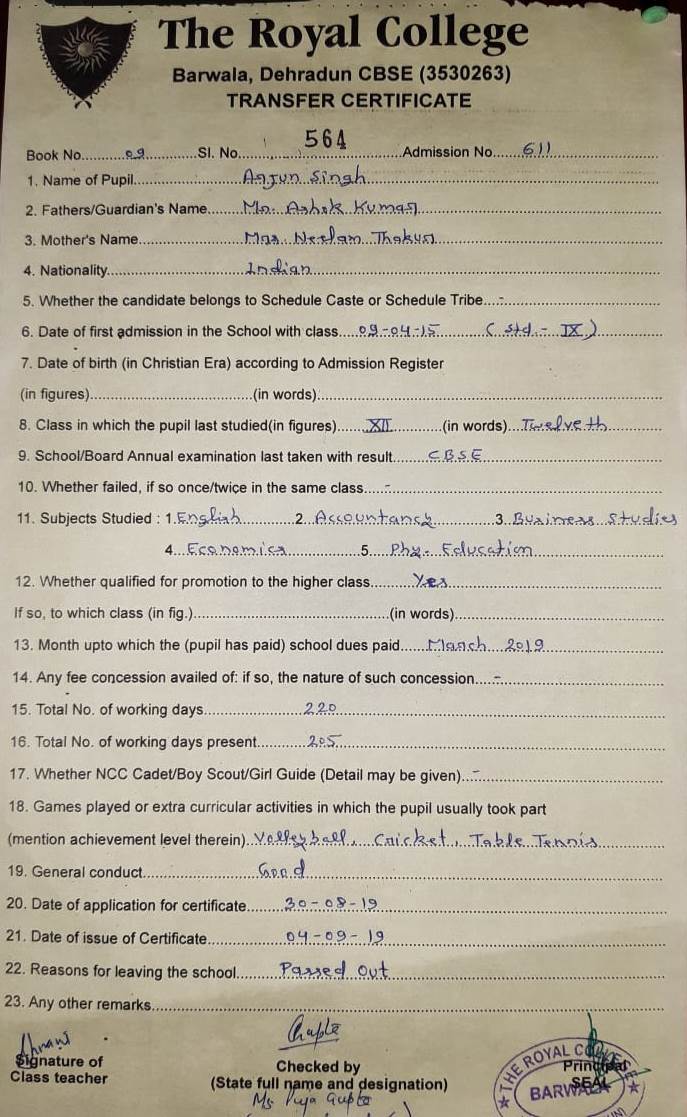 The Royal College
Barwala, Dehradun CBSE (3530263)
TRANSFER CERTIFICATE
Book No. 09 Sl. No. 564 Admission No. 611
1. Name of Pupil Arjun Singh
2. Fathers/Guardian's Name Mr. Ashok Kumar
3. Mother's Name Mrs. Neelam Thakur
4. Nationality Indian
5. Whether the candidate belongs to Schedule Caste or Schedule Tribe -
6. Date of first admission in the School with class 09-04-15 (Std. - IX)
7. Date of birth (in Christian Era) according to Admission Register
(in figures) (in words)
8. Class in which the pupil last studied(in figures) XII (in words) Twelveth
9. School/Board Annual examination last taken with result CBSE
10. Whether failed, if so once/twice in the same class -
11. Subjects Studied : 1. English 2. Accountancy 3. Business Studies
4. Economics 5. Phy. Education
12. Whether qualified for promotion to the higher class Yes
If so, to which class (in fig.) (in words)
13. Month upto which the (pupil has paid) school dues paid March 2019
14. Any fee concession availed of: if so, the nature of such concession -
15. Total No. of working days 220
16. Total No. of working days present 205
17. Whether NCC Cadet/Boy Scout/Girl Guide (Detail may be given) -
18. Games played or extra curricular activities in which the pupil usually took part
(mention achievement level therein) Volleyball, Cricket, Table Tennis
19. General conduct Good
20. Date of application for certificate 30-08-19
21. Date of issue of Certificate 04-09-19
22. Reasons for leaving the school Passed Out
23. Any other remarks
Gupta
Signature of
Class teacher
Checked by
(State full name and designation)
Ms. Puja Gupta
Principal
SEAL
THE ROYAL COLLEGE
BARWALA